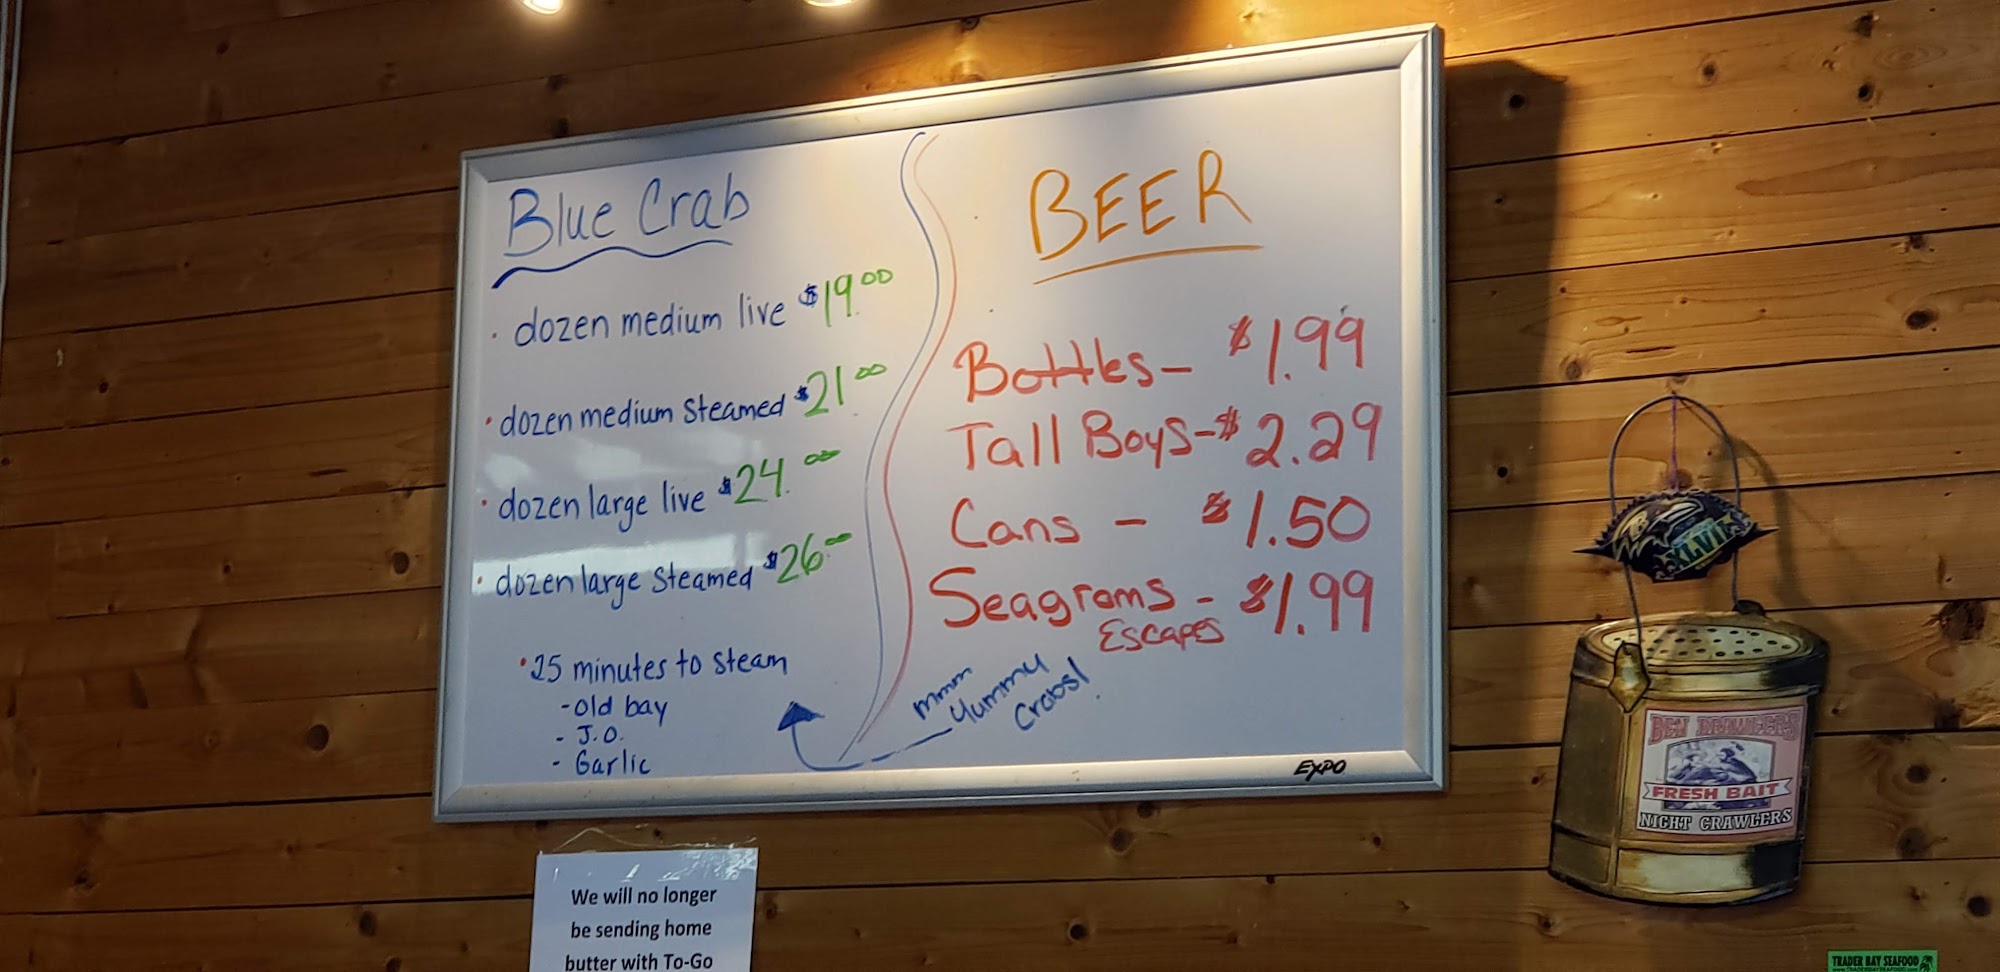 Blue Crab
· dozen medium live $19.00
· dozen medium steamed $21.00
· dozen large live $24.00
· dozen large steamed $26.00
· 25 minutes to steam
- Old bay
- J.O.
- Garlic
BEER
Bottles - $1.99
Tall Boys - $2.29
Cans - $1.50
Seagrams - $1.99
Escapes
mmm
yummy
Crabs!
EXPO
We will no longer
be sending home
butter with To-Go
XLVII
FRESH BAIT
NIGHT CRAWLERS
TRADER BAY SEAFOOD